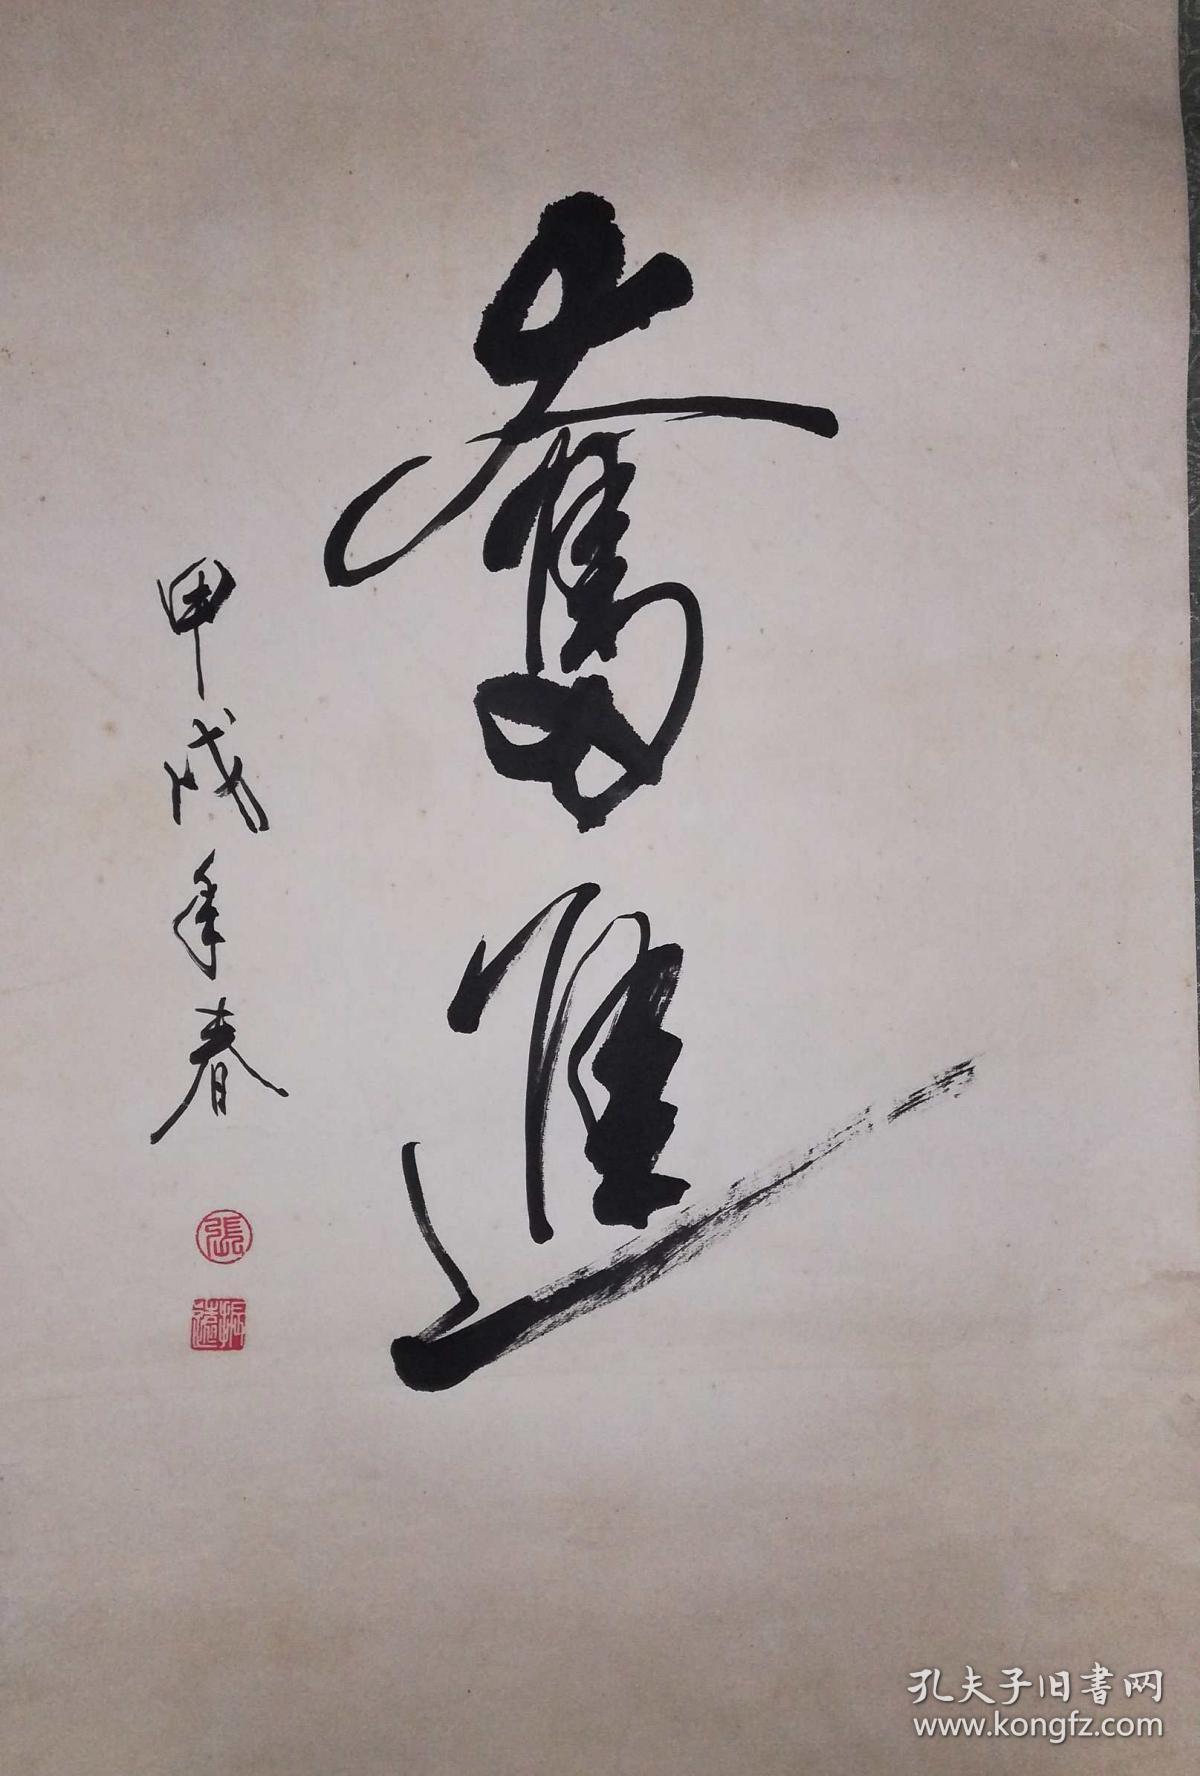 奮進
甲戌年春
張
振遠
孔夫子旧書网
www.kongfz.com